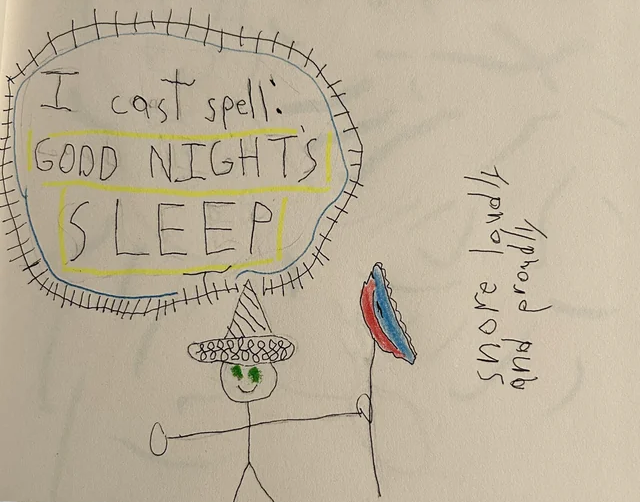 I cast spell:
GOOD NIGHT'S
SLEEP
snore loudly
and proudly